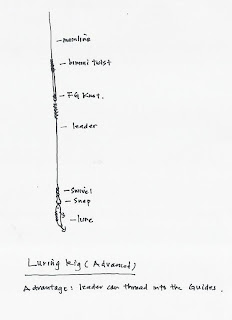 mainline
bimini twist
FG Knot.
leader
Swivel
Snap
lure
Luring Rig (Advanced)
Advantage: leader can thread into the Guides.